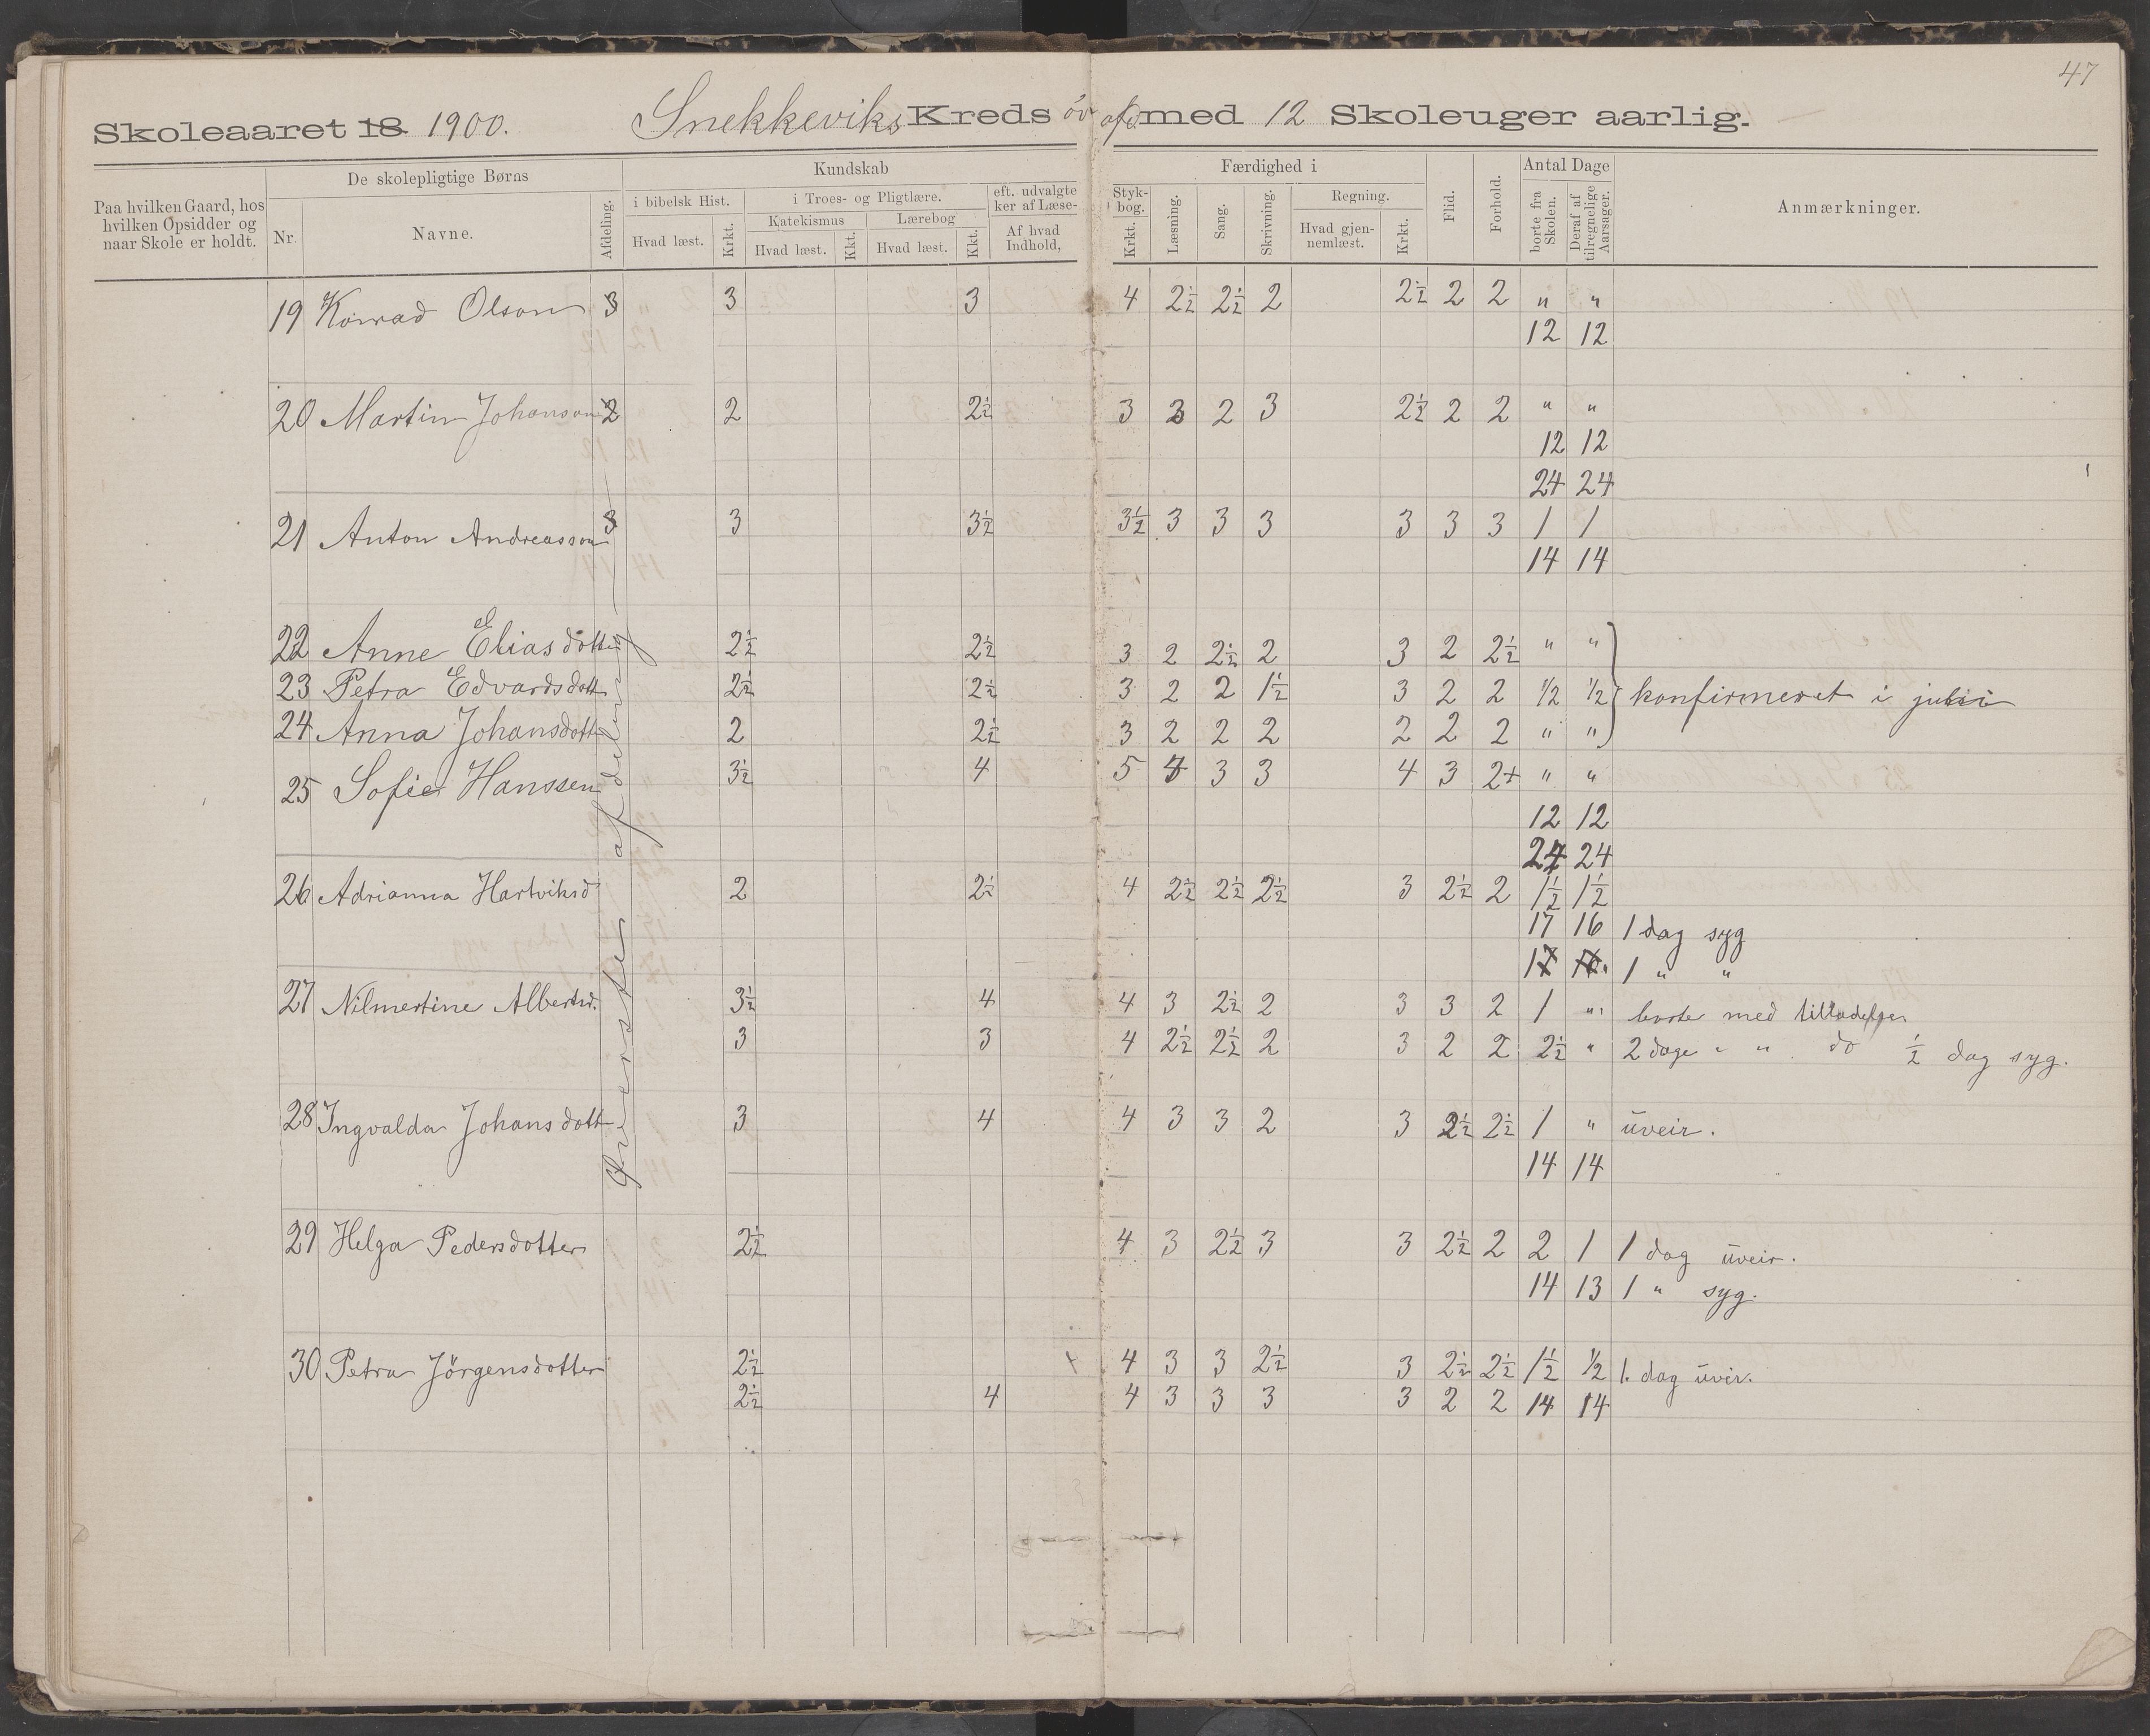 47
Skoleaaret 18 1900. Snekkeviks Kreds öv afd. med 12 Skoleuger aarlig.
Paa hvilken Gaard, hos hvilken Opsidder og naar Skole er holdt.
De skolepligtige Børns
Nr.
Navne.
Afdeling.
Kundskab
i bibelsk Hist.
Hvad læst.
Krkt.
i Troes- og Pligtlære.
Katekismus
Hvad læst.
Kkt.
Lærebog
Hvad læst.
Kkt.
eft. udvalgte
ker af Læse-
Af hvad
Indhold,
Færdighed i
Styk-
bog.
Krkt.
Læsning.
Sang.
Skrivning.
Regning.
Hvad gjen-
nemlæst.
Krkt.
Flid.
Forhold.
Antal Dage
borte fra Skolen.
Deraf af tilregnelige Aarsager.
Anmærkninger.
19 Konrad Olson 3 3 3 4 2½ 2½ 2 2½ 2 2 " "
12 12
20 Martin Johanson 2 2 2½ 3 3 2 3 2½ 2 2 " "
12 12
24 24
21 Anton Andreasson 3 3 3½ 3½ 3 3 3 3 3 3 1 1
14 14
Øverste afdeling
22 Anne Eliasdotter 2½ 2½ 3 2 2½ 2 3 2 2½ " "
23 Petra Edvardsdott 2½ 2½ 3 2 2 1½ 3 2 2 ½ ½ konfirmeret i juli
24 Anna Johansdott 2 2½ 3 2 2 2 2 2 2 " "
25 Sofie Hanssen 3½ 4 5 4 3 3 4 3 2+ " "
12 12
24 24
26 Adrianna Hartviksd 2 2½ 4 2½ 2½ 2½ 3 2½ 2 1½ 1½
17 16 1 dag syg
17 16 1 " "
27 Nilmertine Albertsd. 3½ 4 4 3 2½ 2 3 3 2 1 " borte med tilladelse
3 3 4 2½ 2½ 2 3 2 2 2½ " 2 dage " " do ½ dag syg.
28 Ingvalda Johansdott 3 4 4 3 3 2 3 2½ 2½ 1 " uveir.
14 14
29 Helga Pedersdotter 2½ 4 3 2½ 3 3 2½ 2 2 1 1 dag uveir.
14 13 1 " syg.
30 Petra Jörgensdotter 2½ 4 3 3 2½ 3 2½ 2½ 1½ ½ 1. dag uveir.
2½ 4 4 3 3 3 3 2 2 14 14